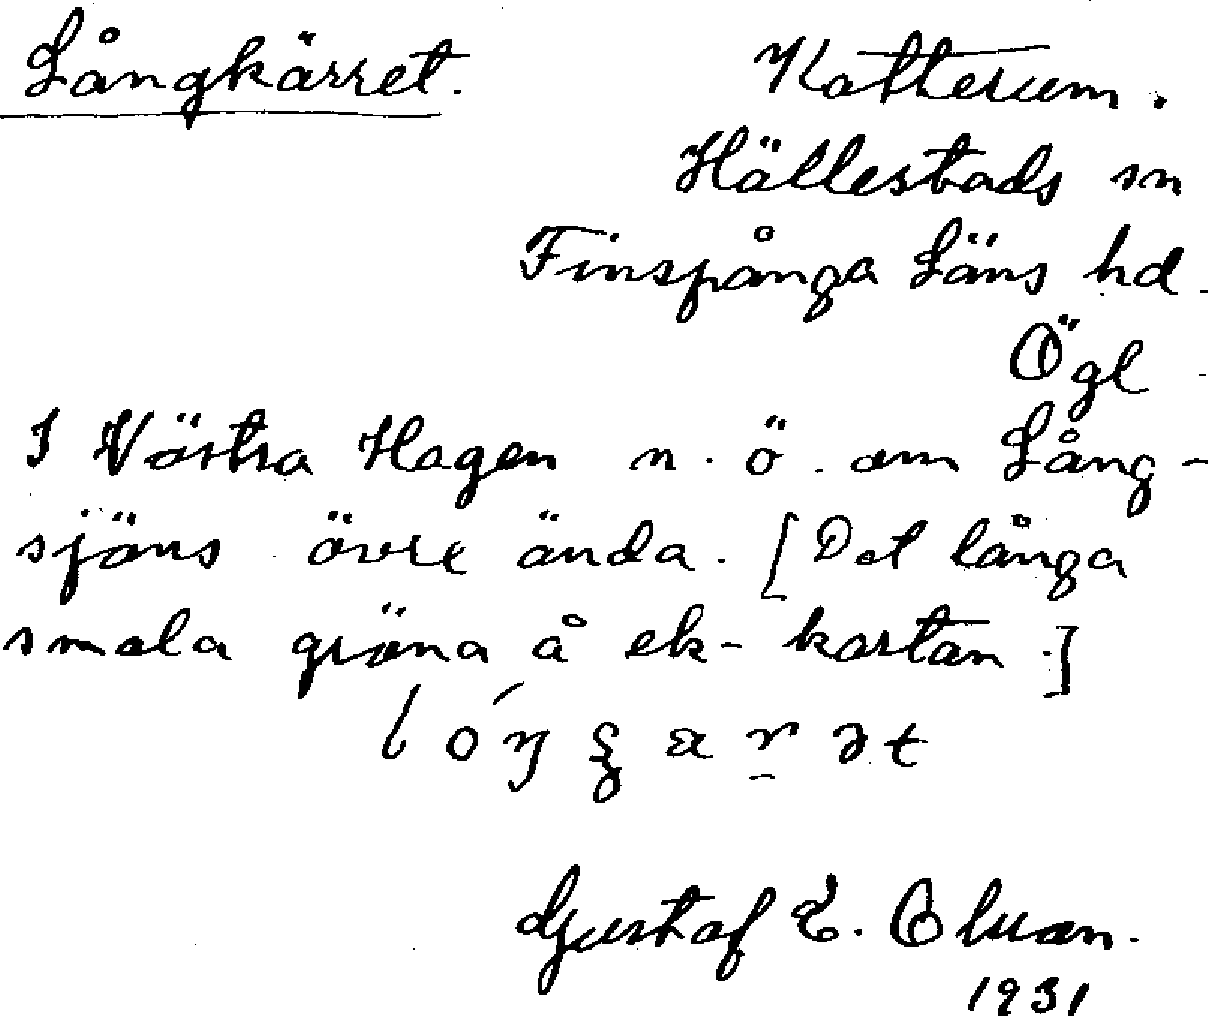 Långkärret.
Katterum.
Hällestads sn
Finspånga Läns hd.
Ögl.
I Västra Hagen n.ö. om Lång-
sjöns övre ända. [Det långa
smala gröna å ek-kartan.]
Gustaf E.
1931